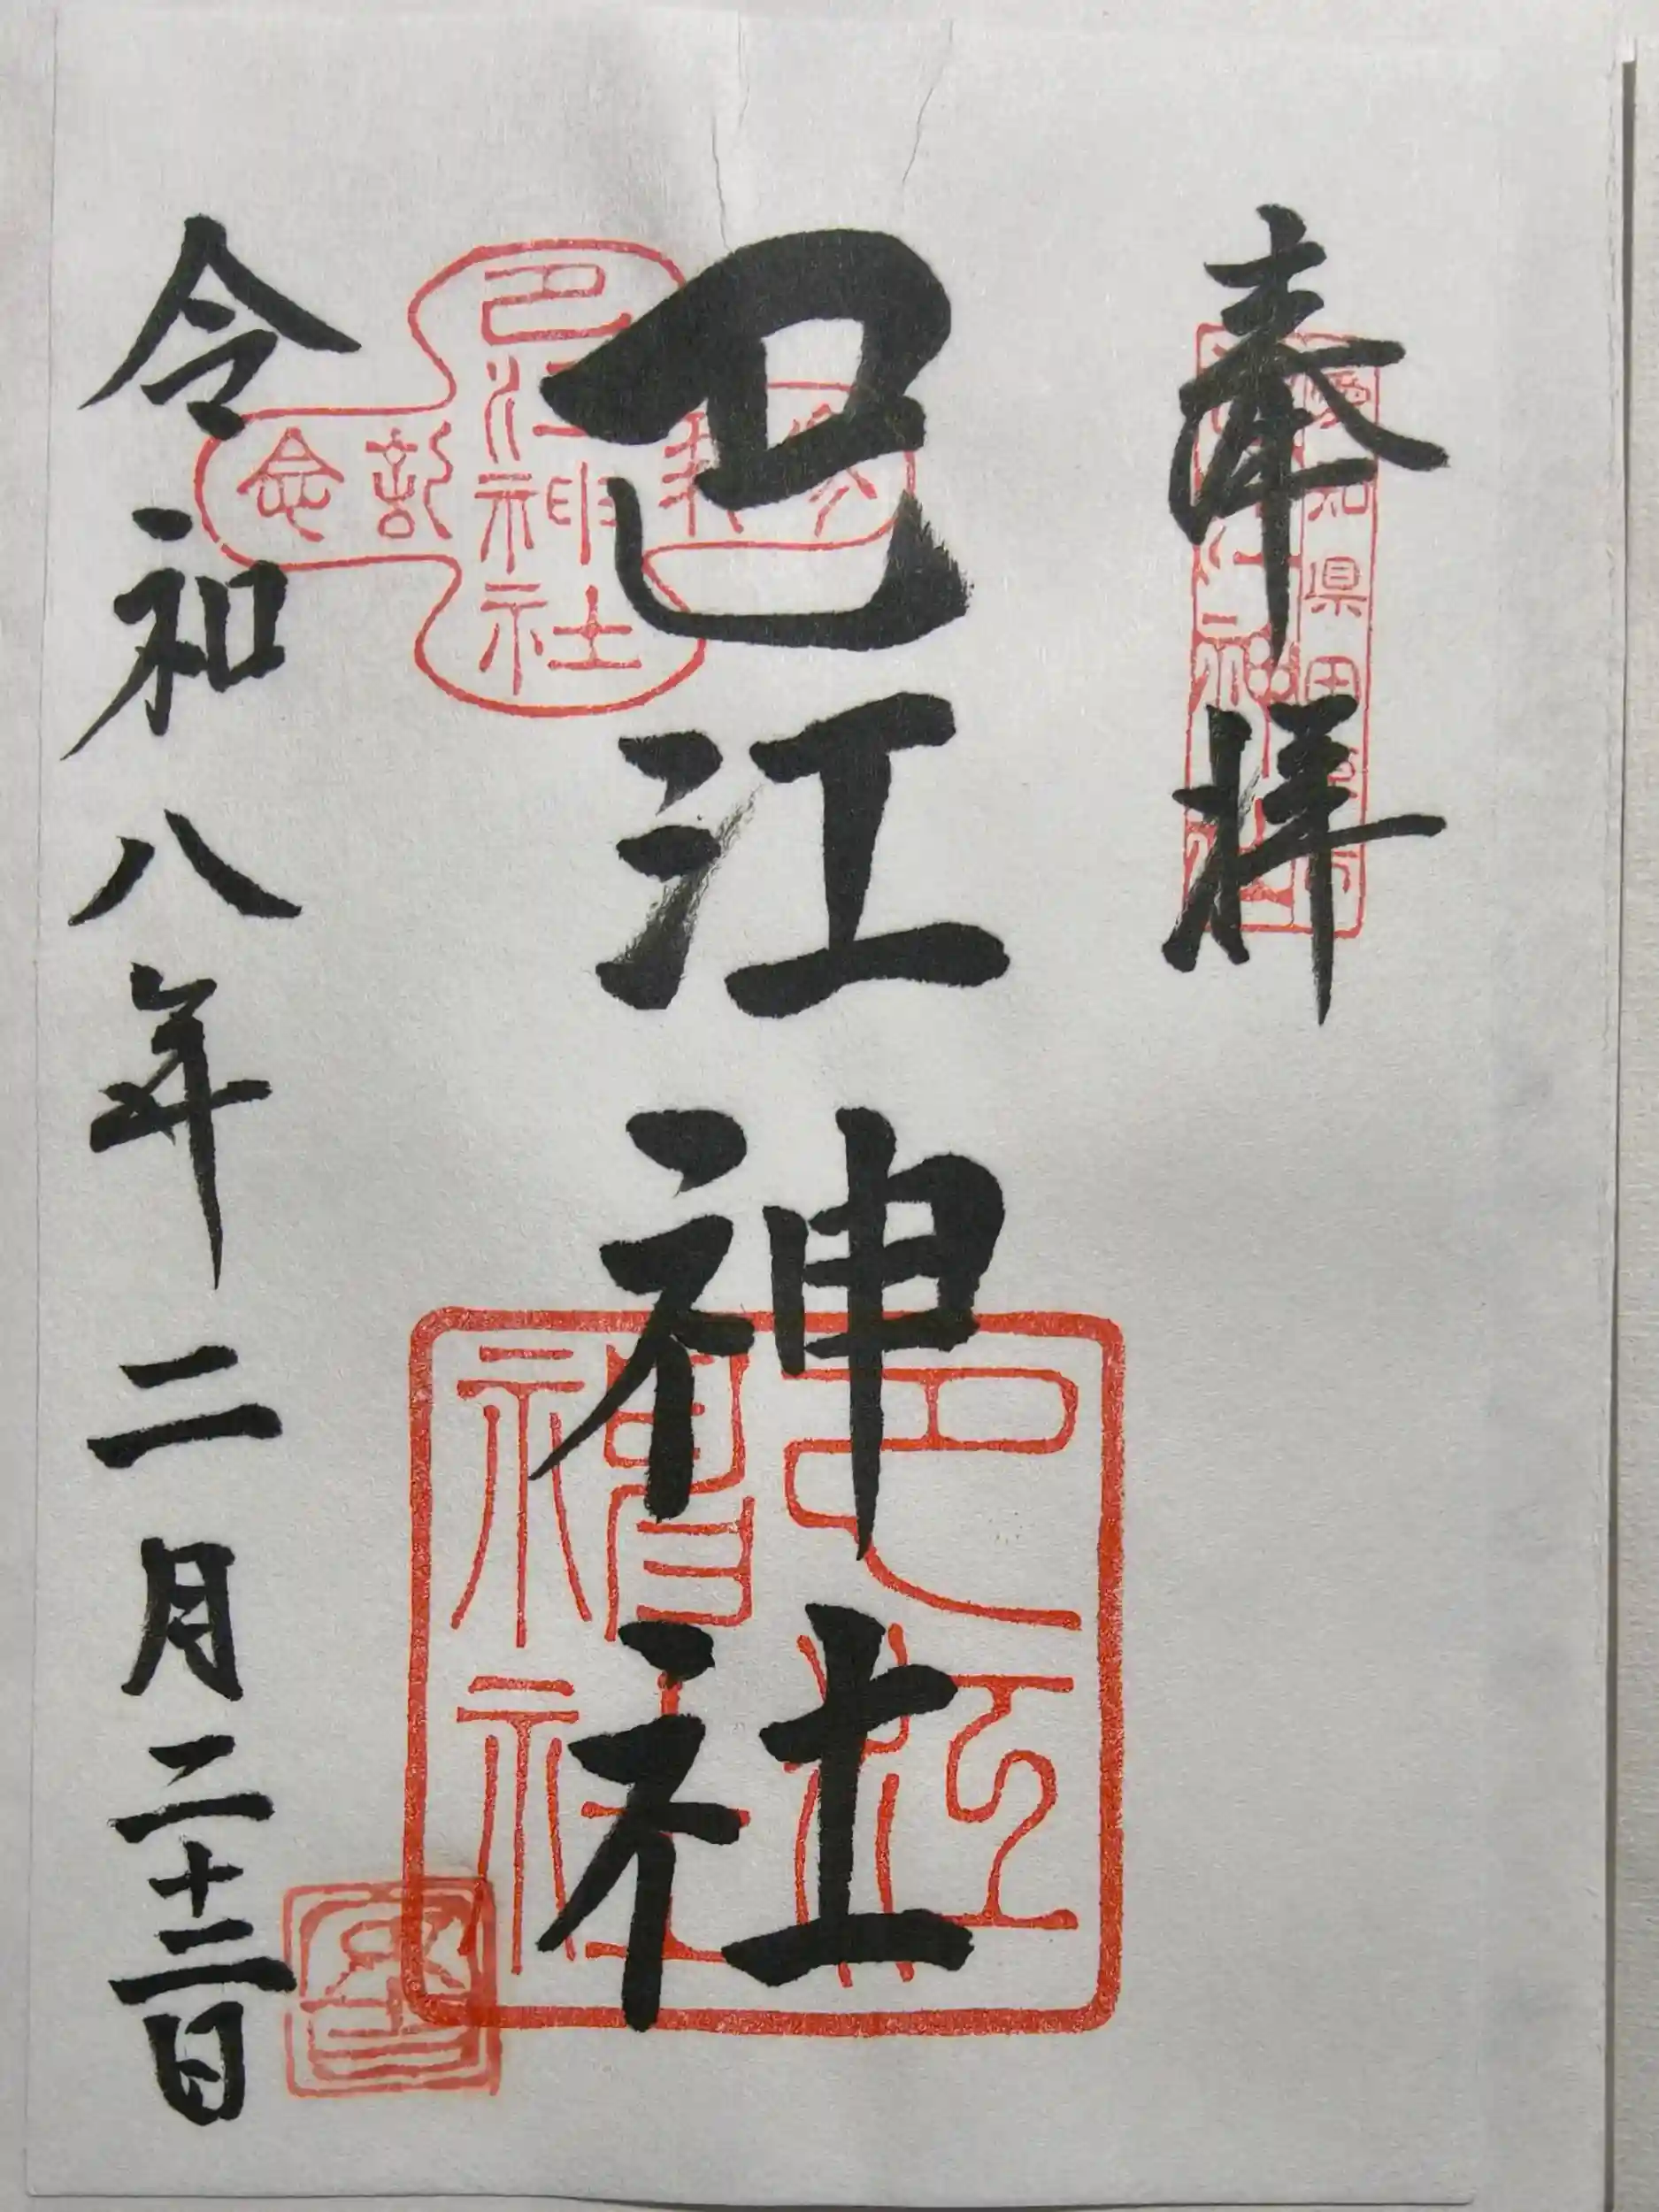 奉拝
愛知県田
巴江神社
巴江神社
参拝記念
巴江神社
令和八年二月二十三日